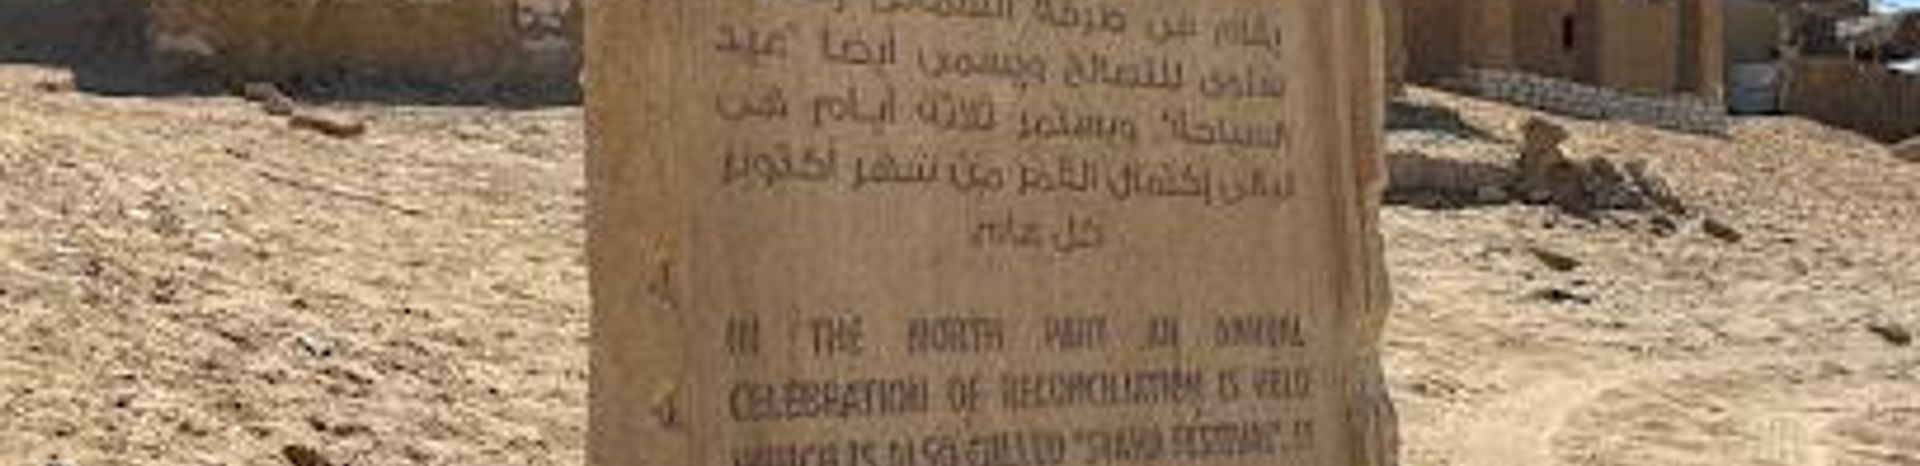 يقام في طرفه الشمالي
سنوي للتصالح ويسمى ايضا "عيد
السياحة" ويستمر ثلاثة أيام في
ليالي إكتمال القمر من شهر أكتوبر
كل عام
IN THE NORTH PART AN ANNUAL
CELEBRATION OF RECONCILIATION IS HELD
WHICH IS ALSO CALLED "SIAHA FESTIVAL". IT